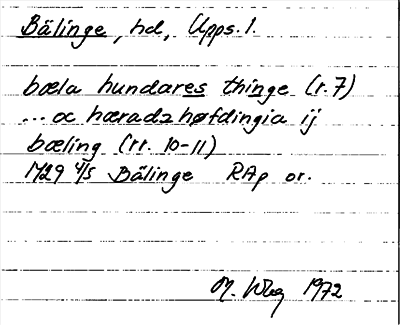 Bälinge, hd, Upps. l.
bæla hundares thinge (r. 7)
... oc hæradzhøfdingia ij
bæling (rr. 10-11)
1429 4/5 Bälinge RAp or.
M. 1972